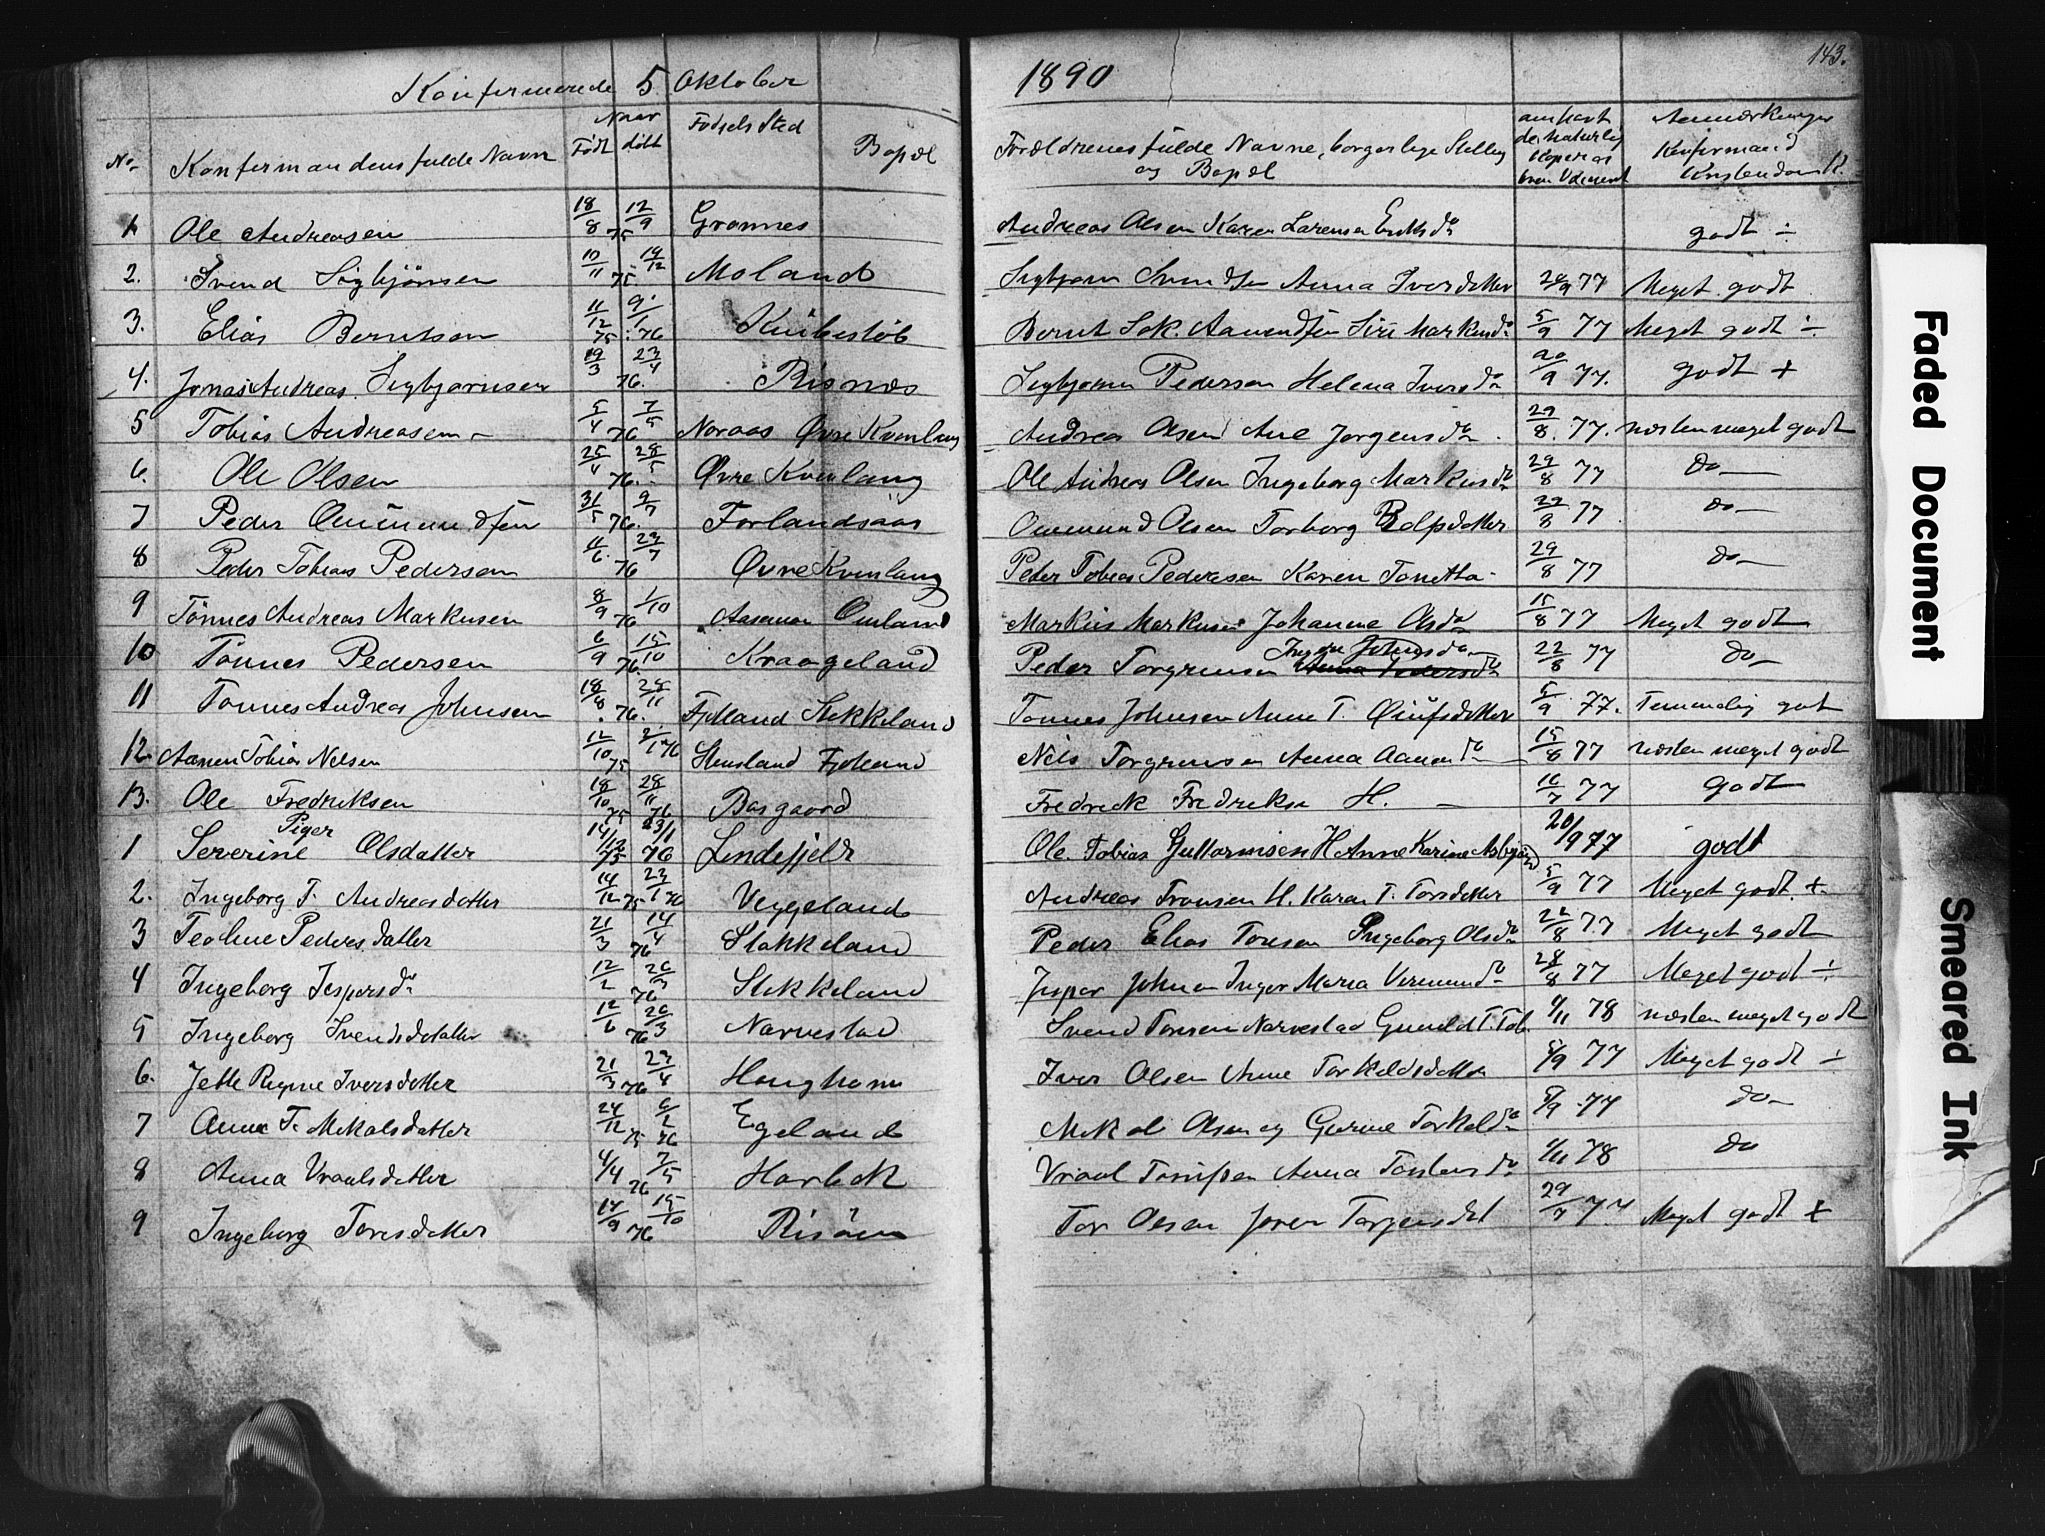 143.
Konfirmerede 5 Oktober 1890
No. Konfirmandens fulde Navn Naar Født døbt Fødsels Sted Bopæl Forældrenes fulde Navne, borgerlige Stilling og Bopæl Anmerkninger Konfirmand Kristendom K.
1 Ole Andreasen 18/8 12/9 75 Grønnes Andreas Olsen Karen godt ÷
2. Svend Sigbjønsen 10/11 75 14/12 Moland Sigbjørn Svendsen Anna Iversdatter 28/9 77 Meget godt
3. Elias Berntsen 11/12 75 9/1 76 Bernt Siri Markusd. 5/9 77 Meget godt ÷
4. Jonas Andreas Sigbjørnsen 19/3 23/4 76. Risnes Sigbjørn Pedersen Helena Iversda 20/9 77. godt +
5 Tobias Andreasen 5/4 7/5 76 Noraas Øvre Kvinlaug Andreas Olsen Ane Jørgensda 29/8. 77. næsten meget godt
6. Ole Olsen 25/4 28/5 76. Øvre Kvinlaug Ole Andreas Olsen Ingeborg Markusda 29/8 77 do
7 Peder Ommundsen 31/5 9/7 76. Forlandsaas Ommund Olsen Torborg 29/8 77 do
8 Peder Tobias Pedersen 11/6. 23/7 76 Øvre Kvinlaug Peder Tobias Pedersen Karen Tonetta 29/8 77 do
9 Tønnes Andreas Markusen 8/9 1/10 76 Omland Markus Markusen Johanne Olsda 15/8 77 Meget godt
10 Tønnes Pedersen 6/9 15/10 76. Kraageland Peder Torgrimsen Johnsda 22/8 77 do
11 Tønnes Andreas Johnsen 18/8 28/11 76. Fjotland Stakkeland Tønnes Johnsen Anne T. 5/9 77. Temmelig got
12. Aanen Tobias Nelsen 12/10 75 2/1 76 Hensland Fjotland Nels Torgrimsen Anna Aanonda 15/8 77 næsten meget godt
13. Ole Fredriksen 18/10 75 28/11 76 Basgaard Fredrick Fredriksen H. 16/7 77 godt
Piger
1 Severine Olsdatter 14/12 75 23/1 76 Lindefjeld Ole Tobias Guttormsen H. Anne Karine 20/9 77 godt
2. Ingeborg T. Andreasdatter 14/12 75 23/1 76 Veggeland Andreas Tronsen H. Karan T. Torsdatter 5/9 77 Meget godt +
3 Teoline Pedersdatter 21/3 14/4 76 Stakkeland Peder Elias Tonsen Ingeborg Olsda 22/8 77 Meget godt
4 Ingeborg Jespersda 12/2 26/3 76 Stakkeland Jesper Johnsen Inger Maria 28/8 77 Meget godt ÷
5 Ingeborg Svendsdatter 12/6 26/3 76 Narvestad Svend Tonsen Narvestad Gunild T. Tob. 9/11 78 næsten meget godt
6. Jette Regine Iversdatter 21/3 23/4 76 Haughom Iver Olsen Anne Torkeldsdatter 5/9 77 Meget godt ÷
7 Anne T. Mikalsdatter 24/12 75 6/2 76 Egeland Mikal Olsen og Gurine Torkelda 5/9 77 do
8 Anna Vraalsdatter 4/4 7/5 76 Hørbek Vraal Anna 9/11 78 do
9 Ingeborg Toresdatter 14/9 15/10 76 Risøen Tor Olsen Joren Torgersdat 29/7 77 Meget godt +
Faded Document
Smeared Ink